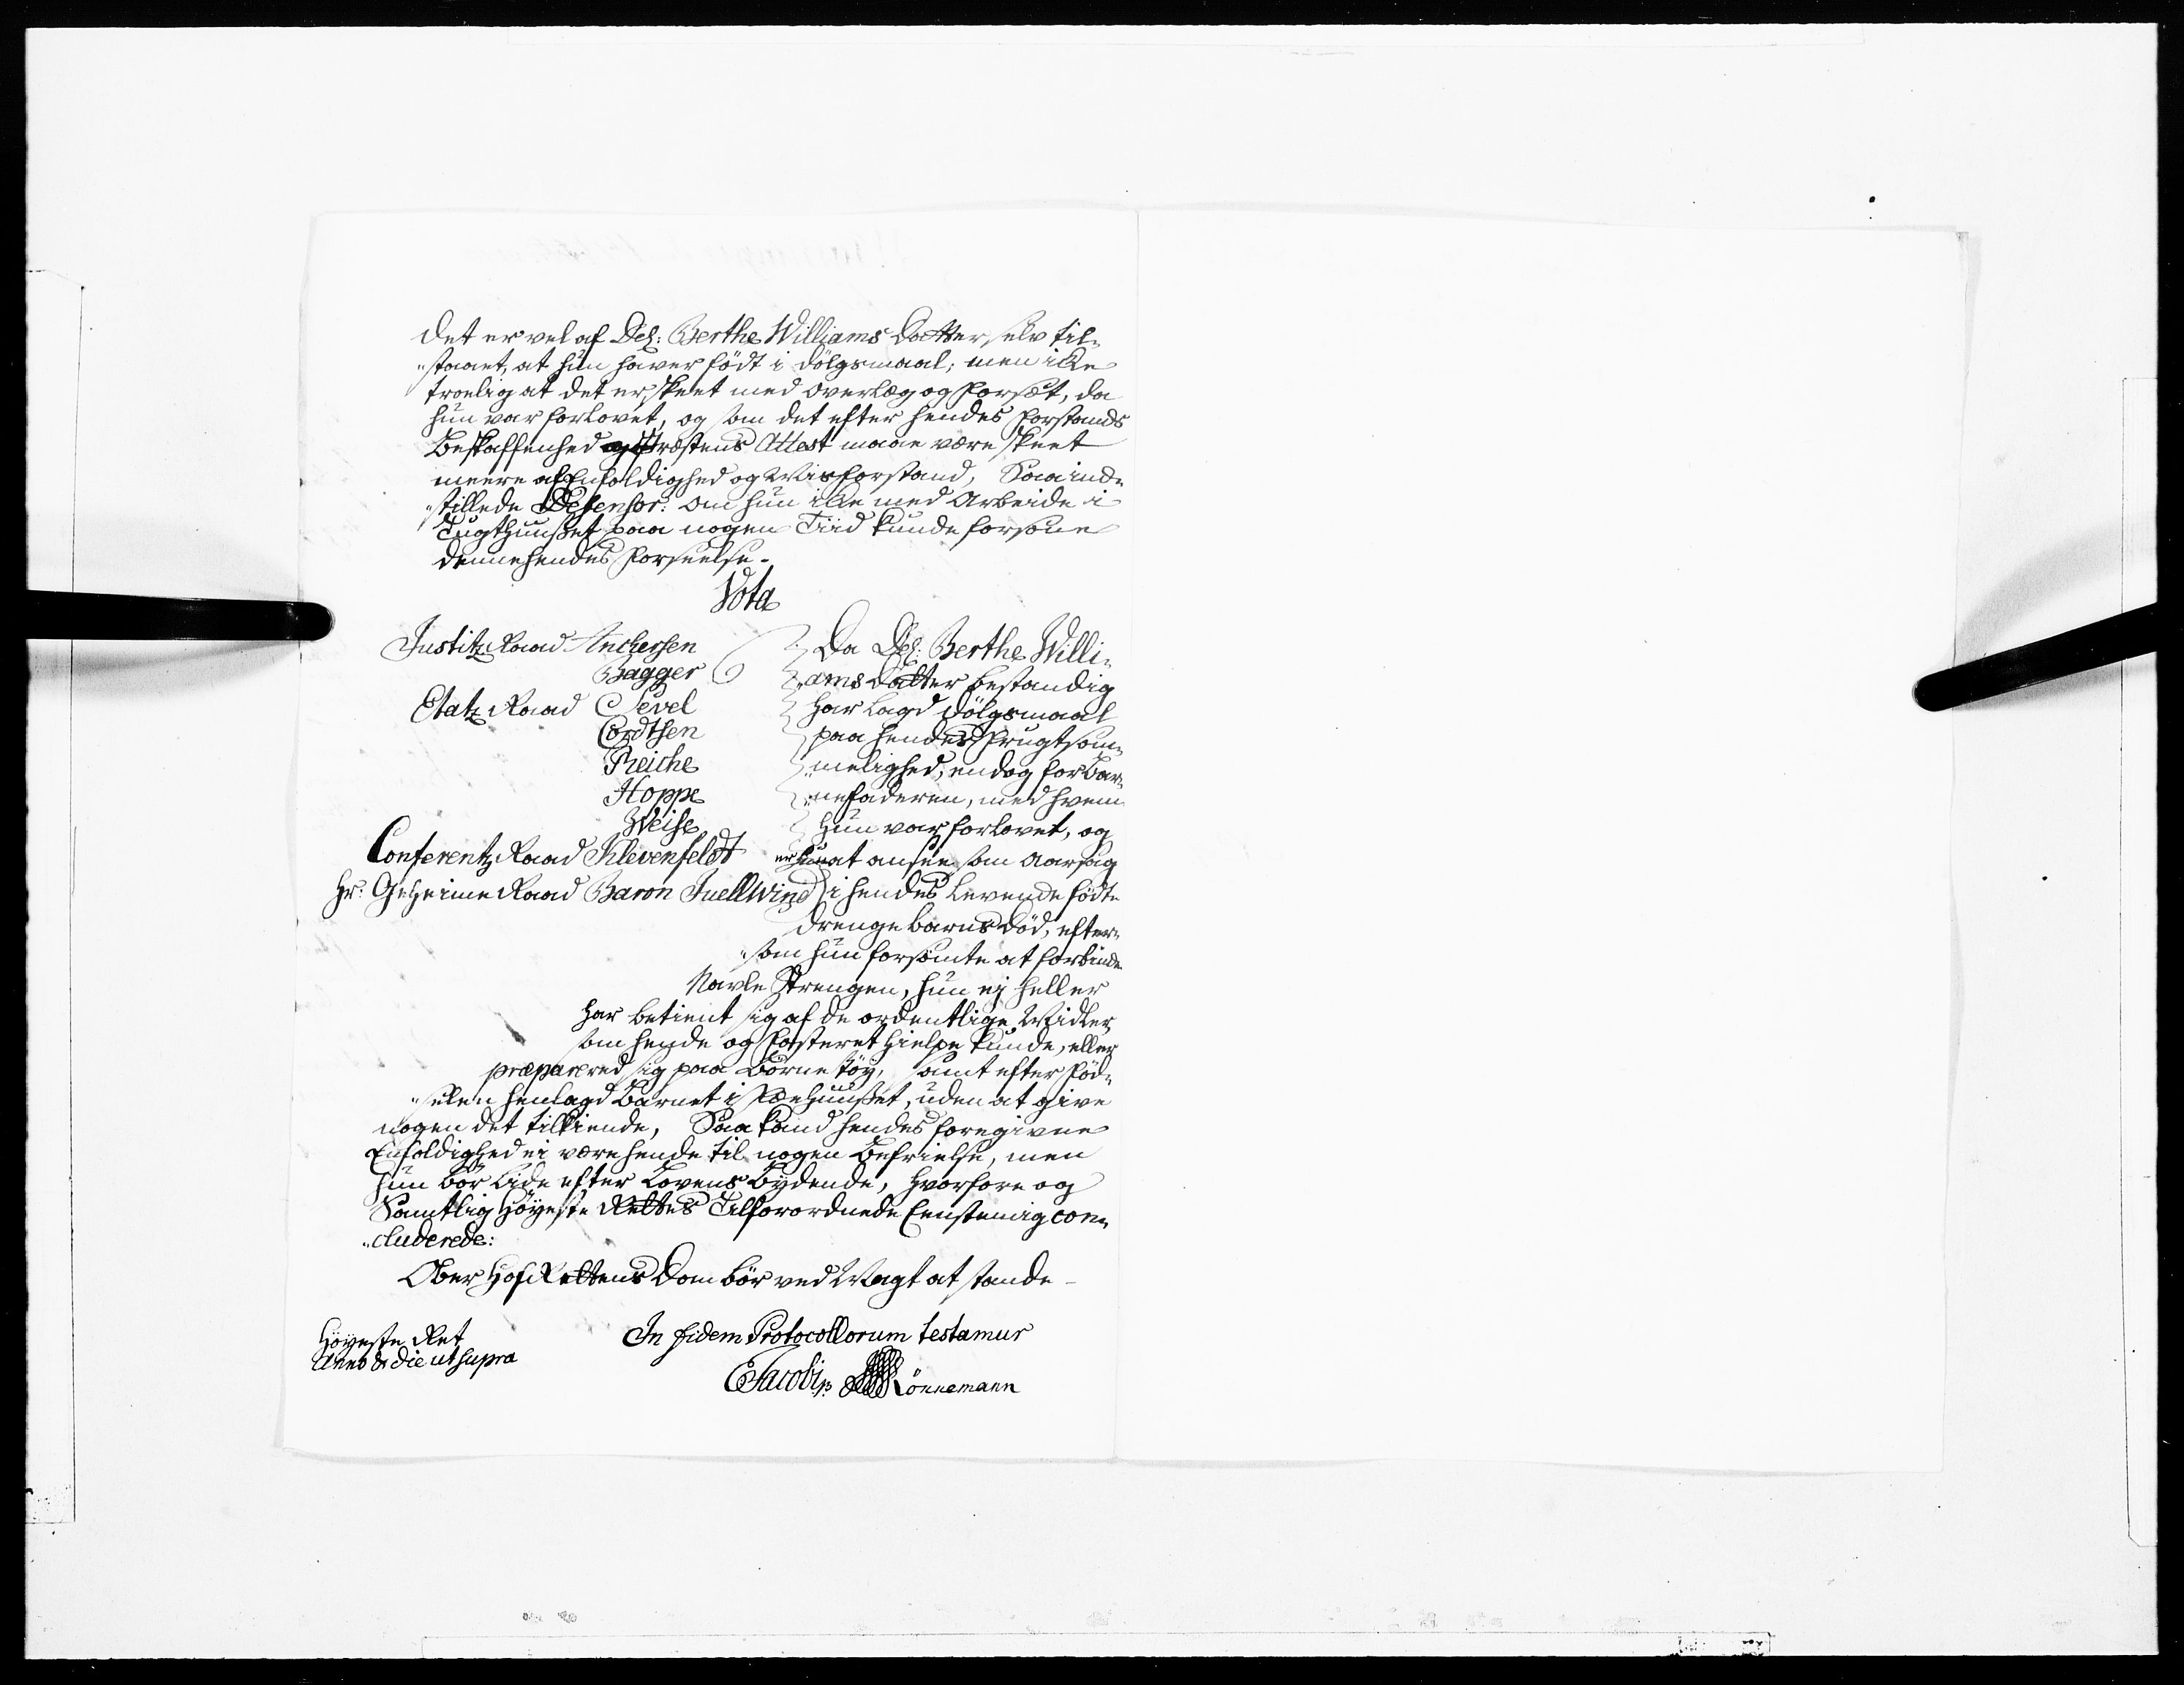 det er vel af Del: Berthe Williams Datter selv til-
staaet, at hun haver födt i dölgsmaal; men ikke
troelig at det er skeet med overlæg og Forsæt, da
hun var forlovet, og som det efter hendes Forstands
Beskaffenhed og Præstens Attest maae være skeet
meere af Eenfoldighed og Misforstand, Saa ind-
stillede Defensor: om hun ikke med Arbeide i
Tugthuuset paa nogen Tiid kunde forsone
denne hendes Forseelse.
Vota
Justitz Raad Anchersen
Bagger
Etatz Raad Sevel
Cordtsen
Reiche
Hoppe
Weise
Conferentz Raad Klevenfeldt
Hr: Geheime Raad Baron Juell Wind
Da Del: Berthe Willi-
ams datter bestandig
har lagd dölgsmaal
paa hendes Frugtsom-
melighed, endog for Bar-
nefaderen, med hvem
hun var forlovet, og
er hun at ansee som Aarsag
i hendes levende födte
drenge Barns död, efter-
som hun forsömte at forbinde
Navle Strengen, hun ej heller
har betient sig af de ordentlige Midler
som hende og Fosteret hielpe kunde, eller
præparered sig paa Börne töy, samt efter Föd-
selen henlagd Barnet i Fæehuuset, uden at give
nogen det tilkiende, Saa kand hendes foregivne
Eenfoldighed ei være hende til nogen Befrielse, men
hun bör lide efter Lovens Bydende, hvorfore og
Samtlig Höyeste Rettes Tilforordnede Eenstemig con-
cluderede:
Ober Hof Rettens Dom bör ved Magt at stande
Höyeste Ret
Anno & die ut supra
In fidem Protocollorum testamur
E Jacobi Rönnemann